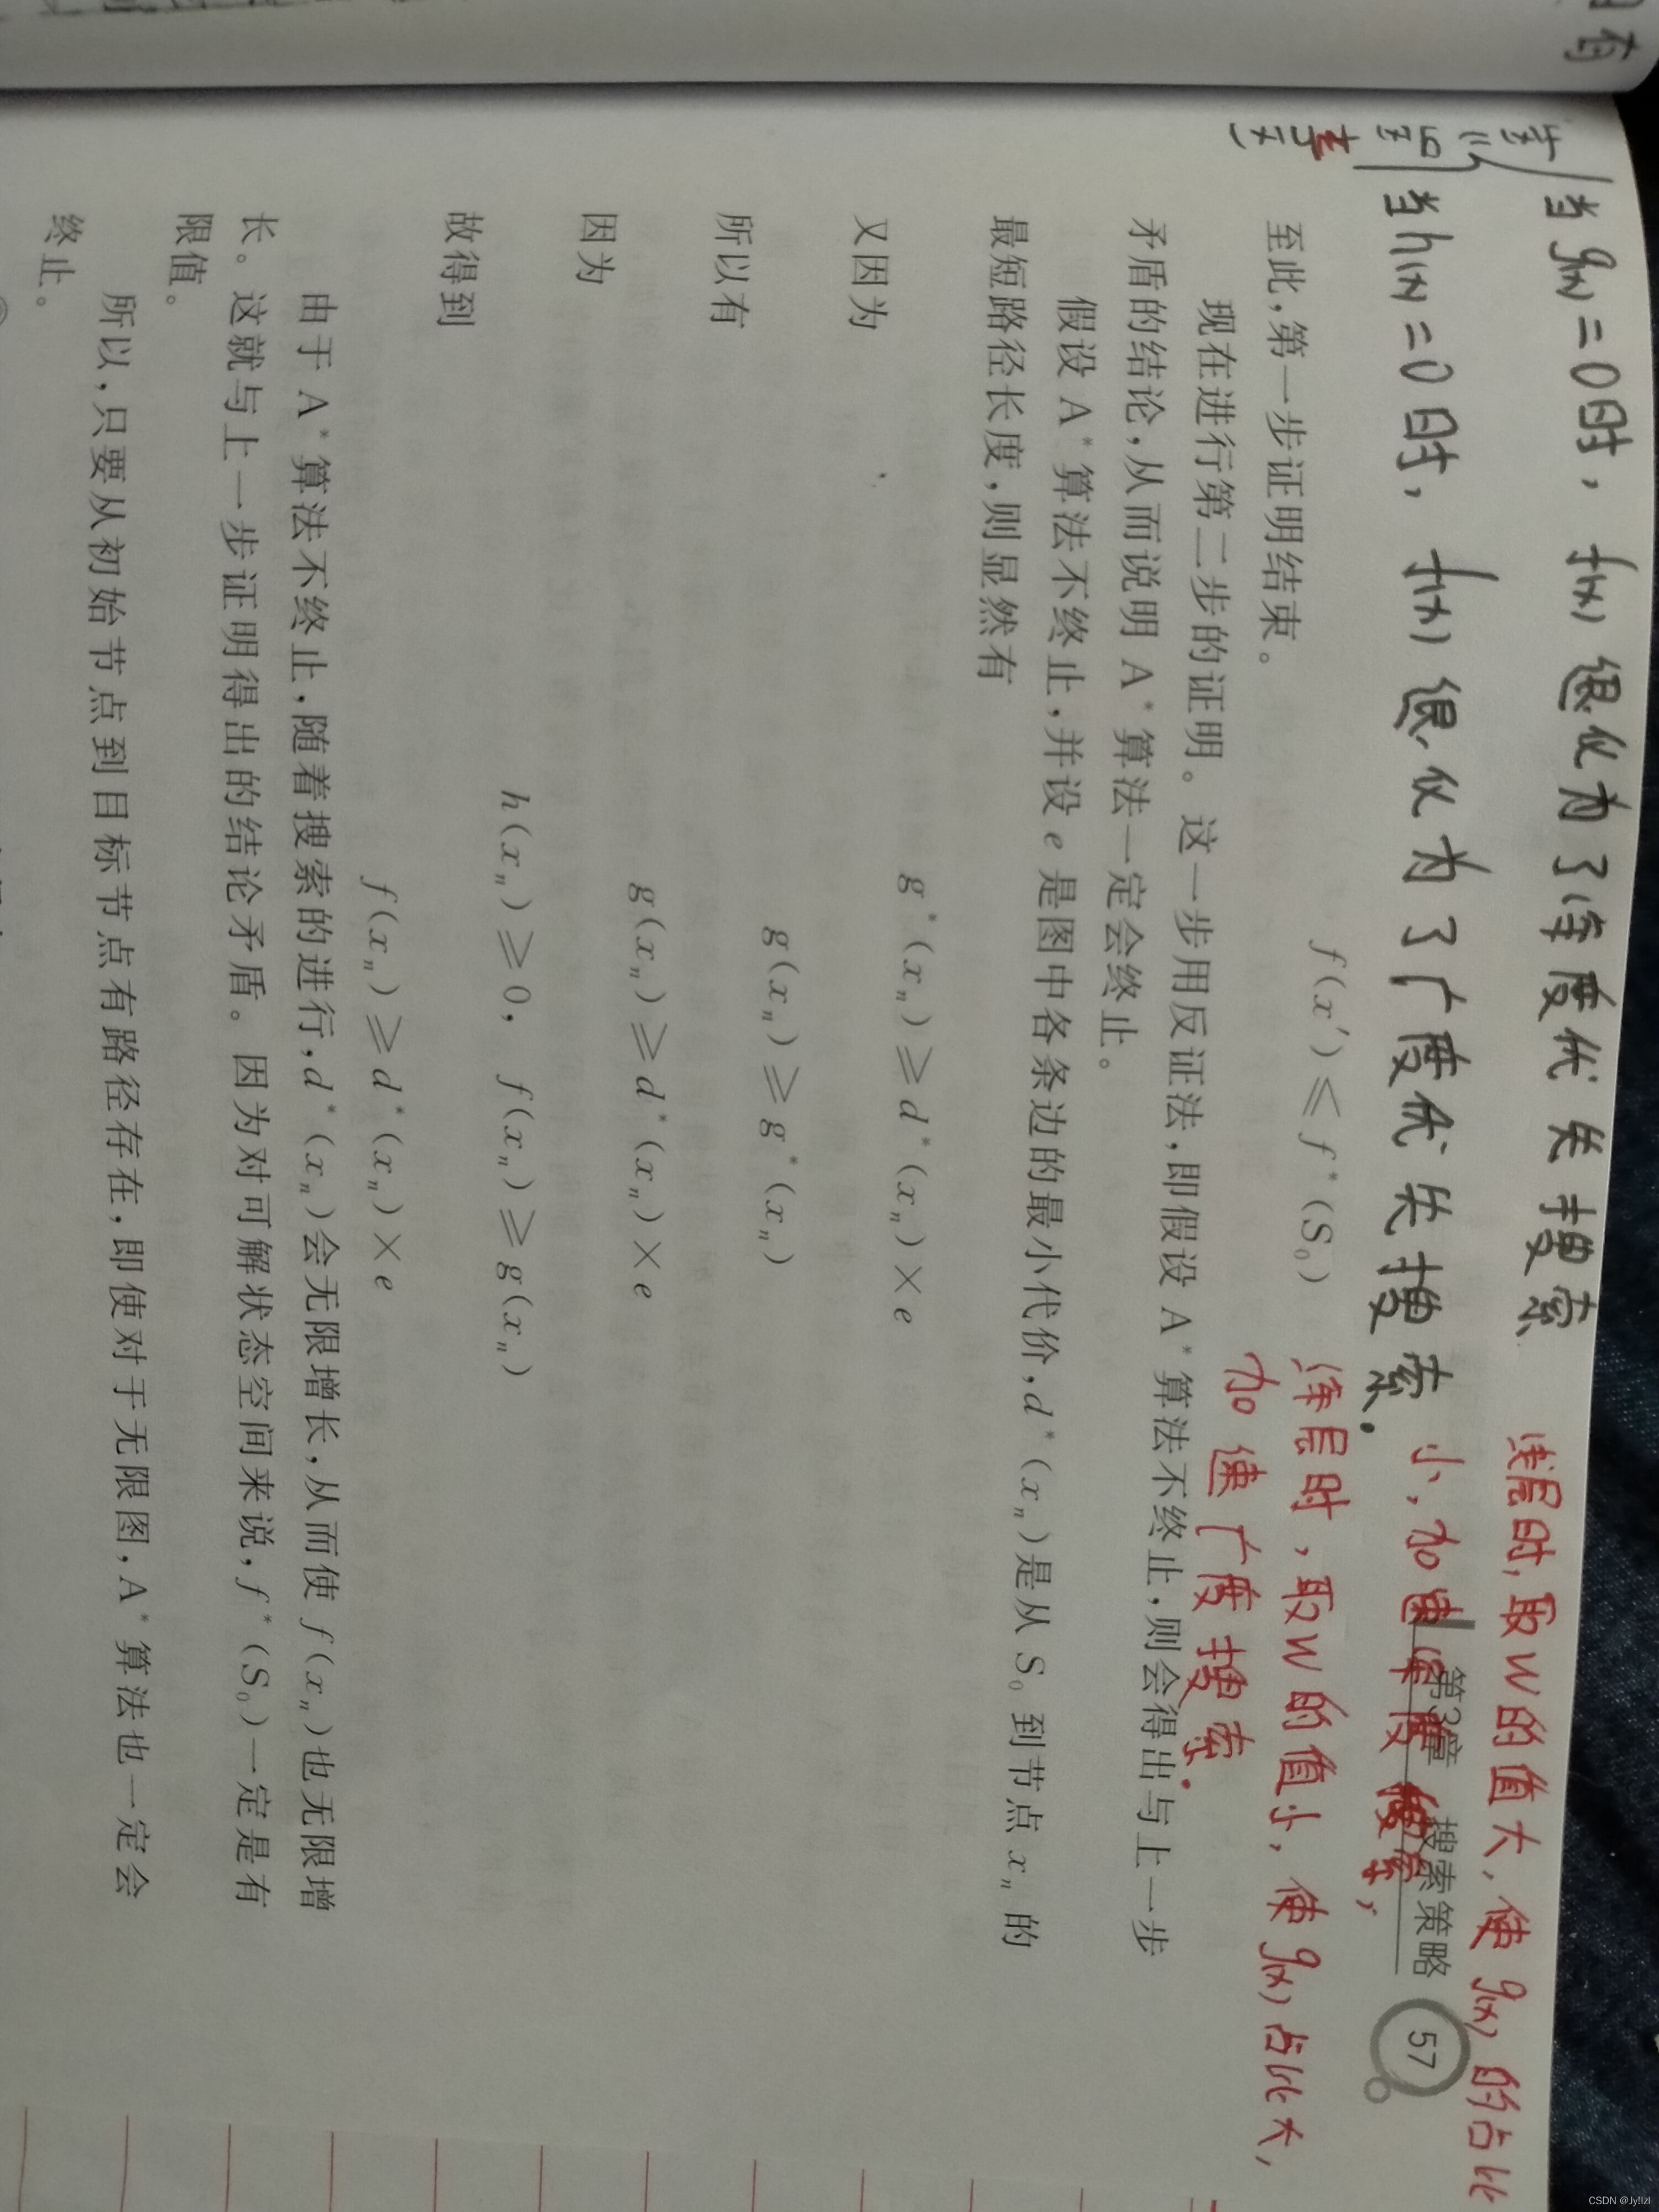 当g(x)=0时，f(x)退化为了深度优先搜索
浅层时，取W的值大，使g(x)的占比
当h(x)=0时，f(x)退化为了广度优先搜索.
小，加速深度搜索，
第3章 搜索策略 57
深层时，取W的值小，使g(x)占比大，
加速广度搜索.
f(x′)≤f*(S₀)
至此，第一步证明结束。
现在进行第二步的证明。这一步用反证法，即假设 A*算法不终止，则会得出与上一步
矛盾的结论，从而说明 A*算法一定会终止。
假设 A*算法不终止，并设 e 是图中各条边的最小代价，d*(xₙ)是从 S₀ 到节点 xₙ 的
最短路径长度，则显然有
g*(xₙ)≥d*(xₙ)×e
又因为
g(xₙ)≥g*(xₙ)
所以有
g(xₙ)≥d*(xₙ)×e
因为
h(xₙ)≥0，f(xₙ)≥g(xₙ)
故得到
f(xₙ)≥d*(xₙ)×e
由于 A*算法不终止，随着搜索的进行，d*(xₙ)会无限增长，从而使 f(xₙ)也无限增
长。这就与上一步证明得出的结论矛盾。因为对可解状态空间来说，f*(S₀)一定是有
限值。
所以，只要从初始节点到目标节点有路径存在，即使对于无限图，A*算法也一定会
终止。
CSDN @Jy!lzl